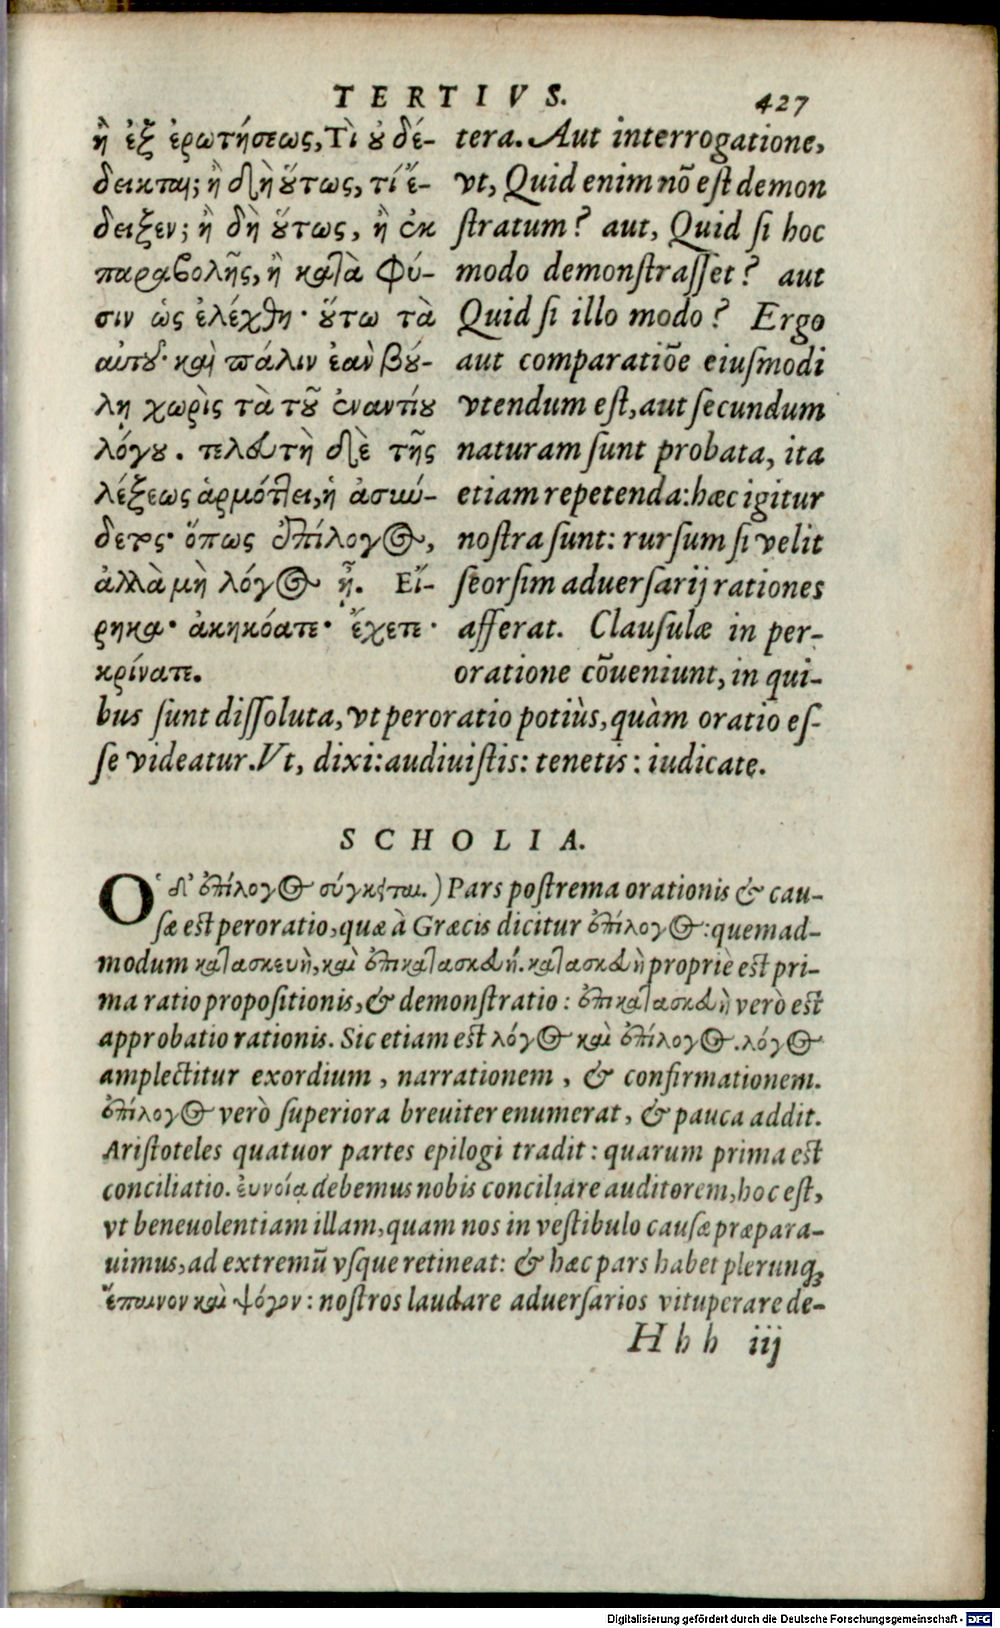 TERTIVS. 427
ἢ ἐξ ἐρωτήσεως, Τὶ ȣ δέ-
δεικται; ἢ δὴ ȣ̓́τως, τί ἔ-
δειξεν; ἢ δὴ ȣ̓́τως, ἢ ἐκ
παραβολῆς, ἢ κατὰ Φύ-
σιν ὡς ἐλέχθη· ȣ̓́τω τὰ
αὑτοῦ· καὶ πάλιν ἐὰν βȣ́-
λῃ χωρὶς τὰ τȣ͂ ἐναντίȣ
λόγȣ. τελευτὴ δὲ τῆς
λέξεως ἁρμότλει, ἡ ἀσιωύ-
δετος· ὅπως ἐπίλογος,
ἀλλὰ μὴ λόγος ᾖ. Εἴ-
ρηκα· ἀκηκόατε· ἔχετε·
κρίνατε.
tera. Aut interrogatione,
vt, Quid enim nõ est demon
stratum? aut, Quid si hoc
modo demonstrasset? aut
Quid si illo modo? Ergo
aut comparatiõe eiusmodi
vtendum est, aut secundum
naturam sunt probata, ita
etiam repetenda: hæc igitur
nostra sunt: rursum si velit
seorsim aduersarij rationes
afferat. Clausulæ in per-
oratione cõueniunt, in qui-
bus sunt dissoluta, vt peroratio potiùs, quàm oratio es-
se videatur. Vt, dixi: audiuistis: tenetis: iudicate.
SCHOLIA.
Ὁ δ' ἐπίλογος σύγκειται.) Pars postrema orationis & cau-
sæ est peroratio, quæ à Græcis dicitur ἐπίλογος: quemad-
modum κατασκευὴ, καὶ ἐπικατασκευή. κατασκευὴ propriè est pri-
ma ratio propositionis, & demonstratio: ἐπικατασκευὴ verò est
approbatio rationis. Sic etiam est λόγος καὶ ἐπίλογος. λόγος
amplectitur exordium, narrationem, & confirmationem.
ἐπίλογος verò superiora breuiter enumerat, & pauca addit.
Aristoteles quatuor partes epilogi tradit: quarum prima est
conciliatio. ἐυνοίᾳ debemus nobis conciliare auditorem, hoc est,
vt beneuolentiam illam, quam nos in vestibulo causæ præpara-
uimus, ad extremũ vsque retineat: & hæc pars habet plerunq;
ἔπαινον καὶ ψόγον: nostros laudare aduersarios vituperare de-
Hhh iij
Digitalisierung gefördert durch die Deutsche Forschungsgemeinschaft - DFG